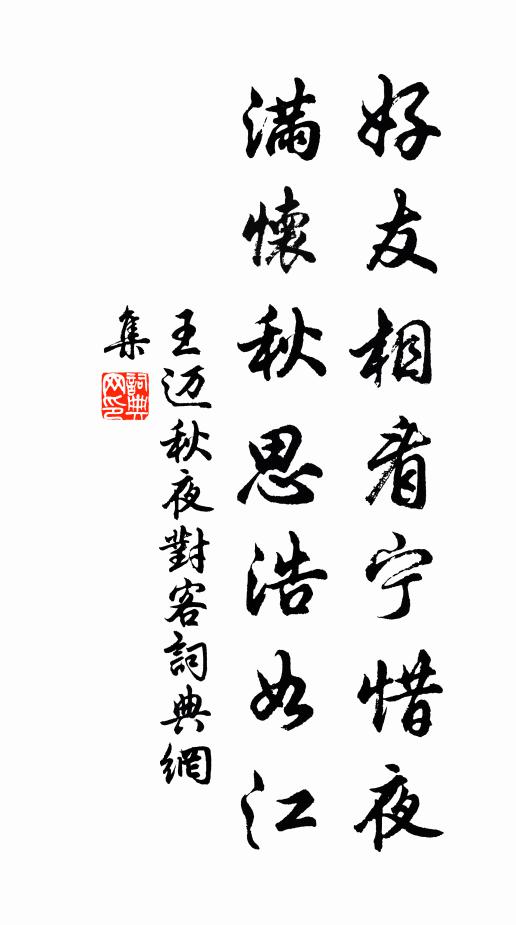 好友相看宁惜夜
满懷秋思浩如江
王迈秋夜對客詞典網
集
詞典
网印